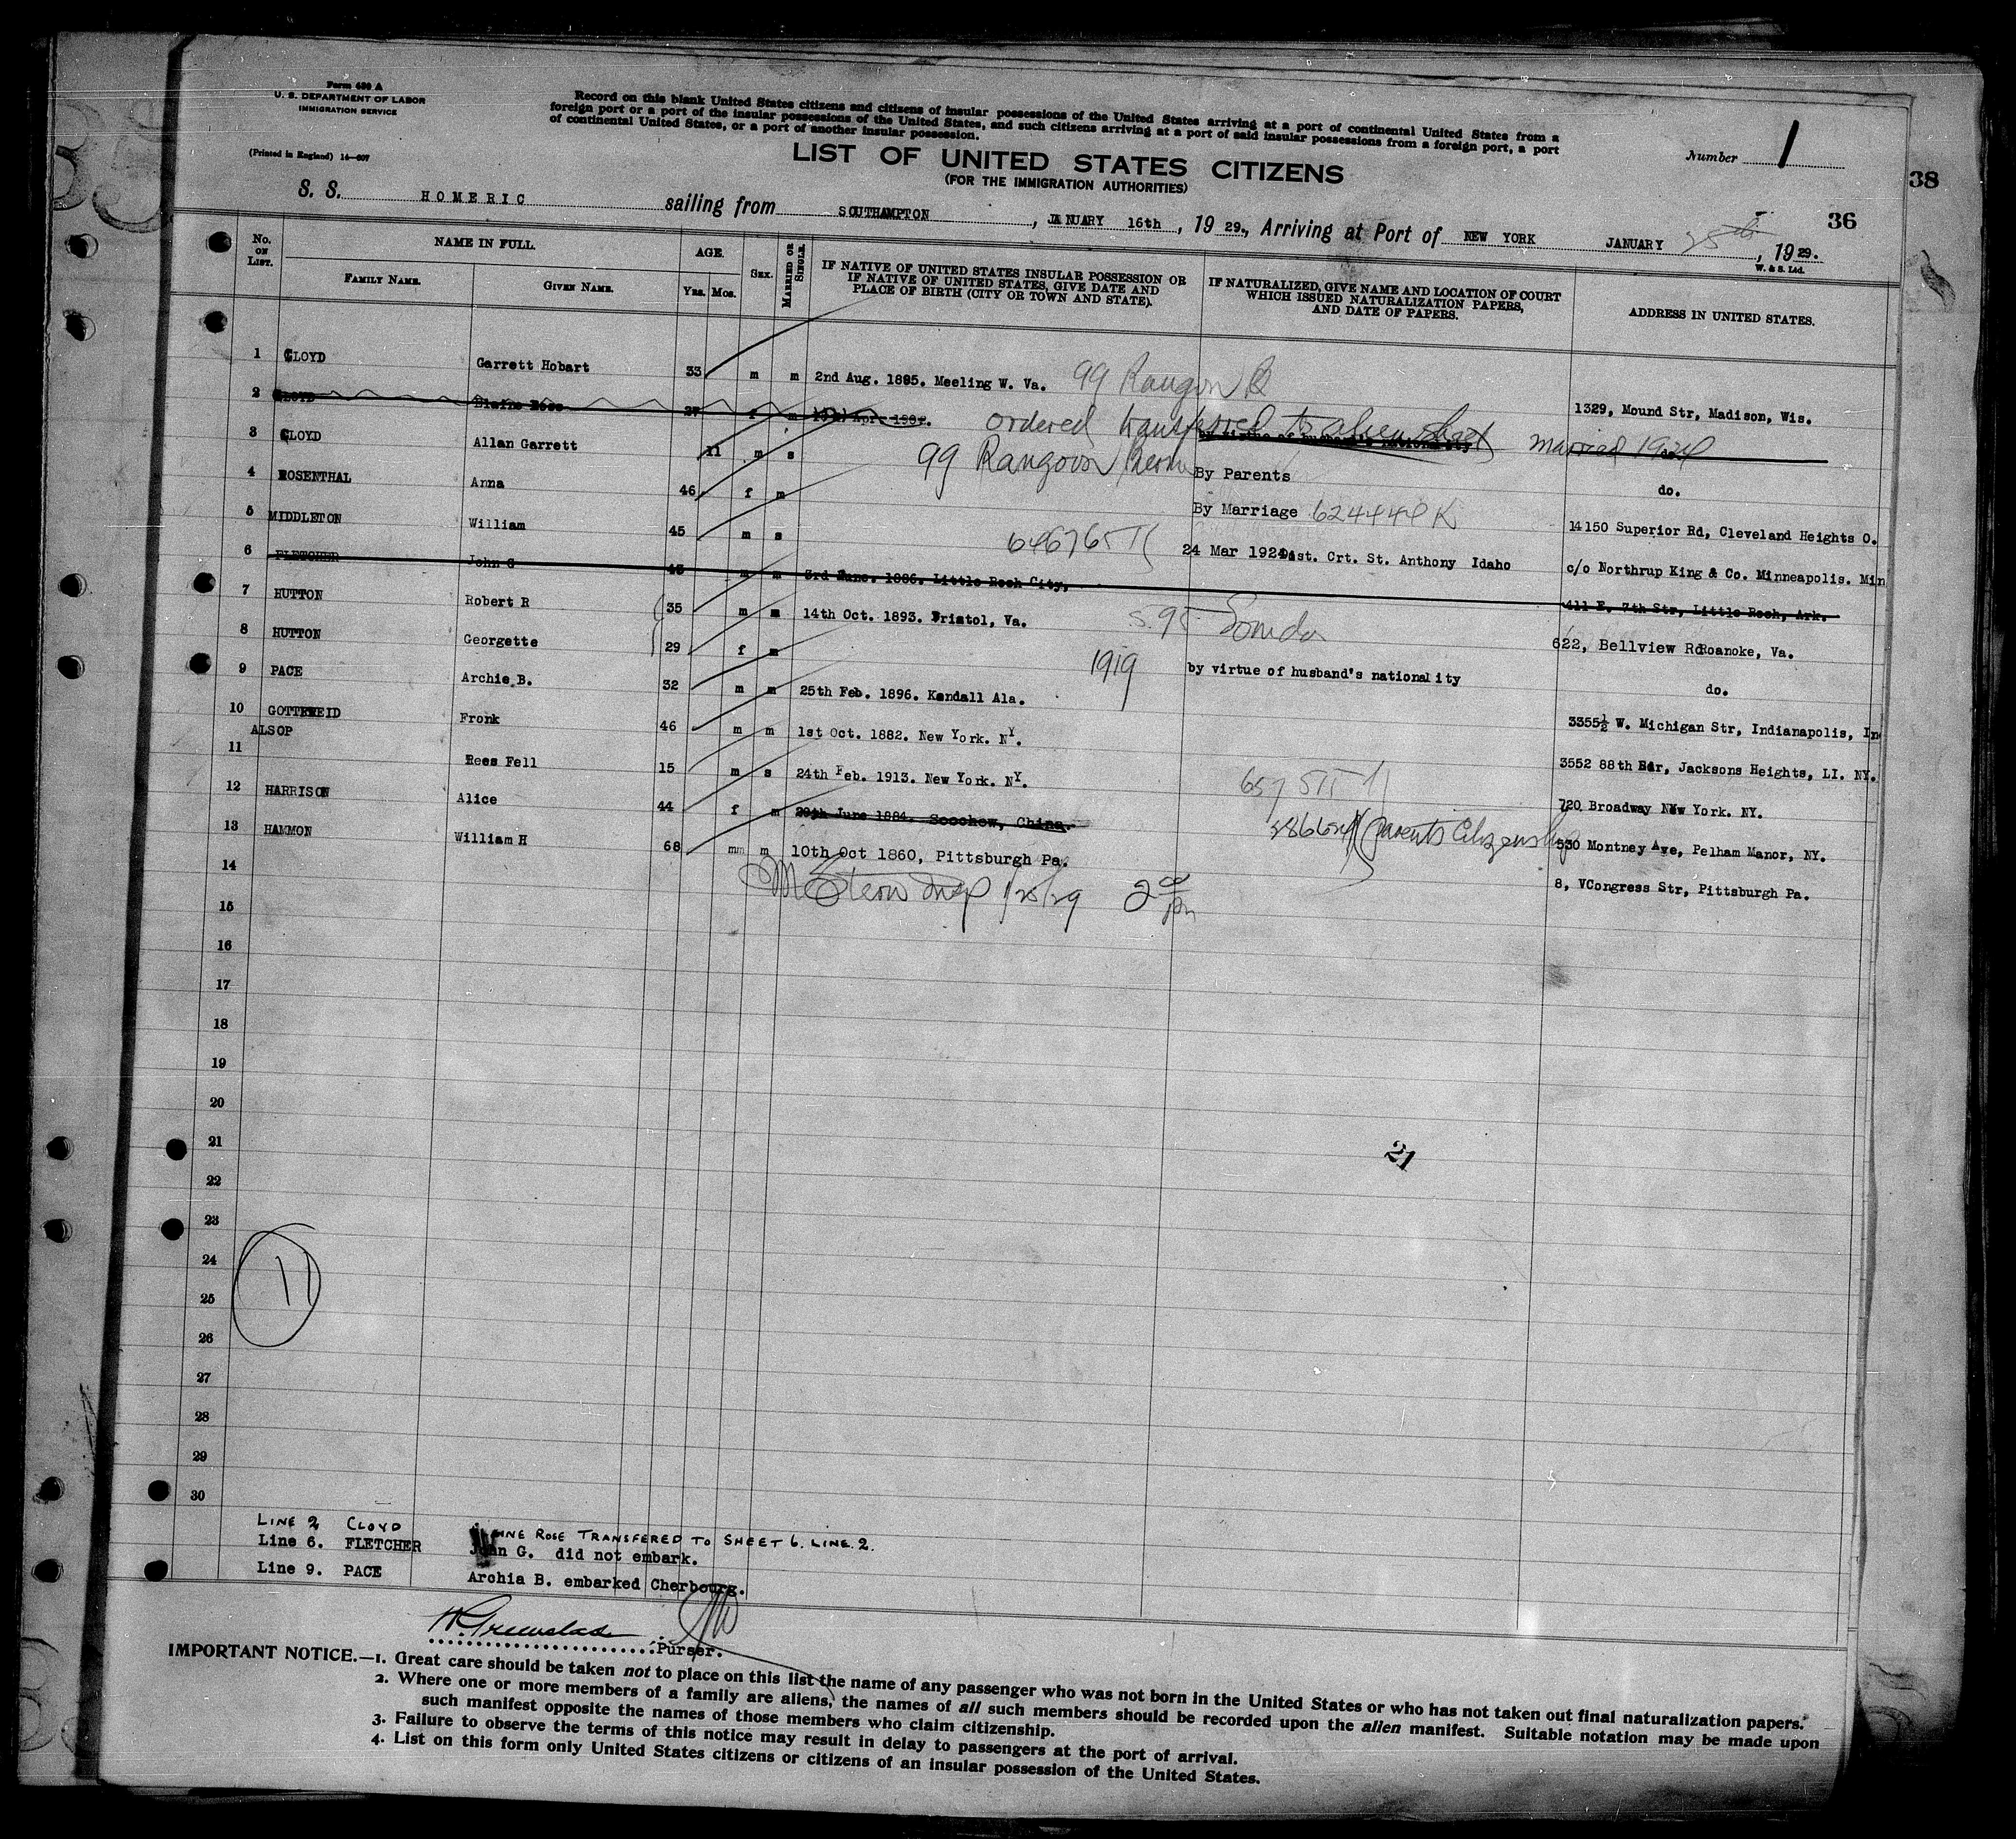 Form 630 A
U. S. DEPARTMENT OF LABOR
IMMIGRATION SERVICE
(Printed in England) 14—607
Record on this blank United States citizens and citizens of insular possessions of the United States arriving at a port of continental United States from a
foreign port or a port of the insular possessions of the United States, and such citizens arriving at a port of said insular possessions from a foreign port, a port
of continental United States, or a port of another insular possession.
LIST OF UNITED STATES CITIZENS
(FOR THE IMMIGRATION AUTHORITIES)
Number 1
38
36
S. S. HOMERIC sailing from SOUTHAMPTON, JANUARY 16th, 1929., Arriving at Port of NEW YORK JANUARY 25th, 1929.
W. & S. Ltd.
No. ON LIST.
NAME IN FULL.
FAMILY NAME.
GIVEN NAME.
AGE.
Yrs. Mos.
SEX.
MARRIED OR SINGLE.
IF NATIVE OF UNITED STATES INSULAR POSSESSION OR
IF NATIVE OF UNITED STATES, GIVE DATE AND
PLACE OF BIRTH (CITY OR TOWN AND STATE).
IF NATURALIZED, GIVE NAME AND LOCATION OF COURT
WHICH ISSUED NATURALIZATION PAPERS,
AND DATE OF PAPERS.
ADDRESS IN UNITED STATES.
1 CLOYD Garrett Hobart 33 m m 2nd Aug. 1895. Meeling W. Va. 99 Rangoon 1329, Mound Str, Madison, Wis.
2 CLOYD Rose 27 f m 1901. ordered transferred to alien sheet by virtue of husband's nationality married 1924
3 CLOYD Allan Garrett 11 m s 99 Rangoon By Parents do.
4 ROSENTHAL Anna 46 f m By Marriage 624444 K 14150 Superior Rd, Cleveland Heights O.
5 MIDDLETON William 45 m s 24 Mar 1924 Dist. Crt. St. Anthony Idaho c/o Northrup King & Co. Minneapolis. Min
6 FLETCHER John G 43 m m 3rd June. 1886. Little Rock City, 411 E. 7th Str, Little Rock, Ark.
7 HUTTON Robert R 35 m m 14th Oct. 1893. Bristol, Va. 622, Bellview Rd Roanoke, Va.
8 HUTTON Georgette 29 f m 1919 by virtue of husband's nationality do.
9 PACE Archie B. 32 m m 25th Feb. 1896. Kendall Ala. 3355½ W. Michigan Str, Indianapolis, In
10 GOTTWEID Fronk 46 m m 1st Oct. 1882. New York. NY. 3552 88th Str, Jacksons Heights, LI. NY.
11 ALSOP Rees Fell 15 m s 24th Feb. 1913. New York. NY. 720 Broadway New York. NY.
12 HARRISON Alice 44 f m 29th June 1884. Soochow, China. Parents Citizenship 530 Montney Ave, Pelham Manor, NY.
13 HAMMON William H 68 mm m 10th Oct 1860, Pittsburgh Pa. 8, VCongress Str, Pittsburgh Pa.
14 1/25/29 2 00 pm
15
16
17
18
19
20
21
21
22
23
24
11
25
26
27
28
29
30
LINE 2 CLOYD ROSE TRANSFERED TO SHEET 6. LINE 2.
Line 6. FLETCHER John G. did not embark.
Line 9. PACE Archia B. embarked Cherbourg.
Purser.
IMPORTANT NOTICE.—1. Great care should be taken not to place on this list the name of any passenger who was not born in the United States or who has not taken out final naturalization papers.
2. Where one or more members of a family are aliens, the names of all such members should be recorded upon the alien manifest. Suitable notation may be made upon
such manifest opposite the names of those members who claim citizenship.
3. Failure to observe the terms of this notice may result in delay to passengers at the port of arrival.
4. List on this form only United States citizens or citizens of an insular possession of the United States.